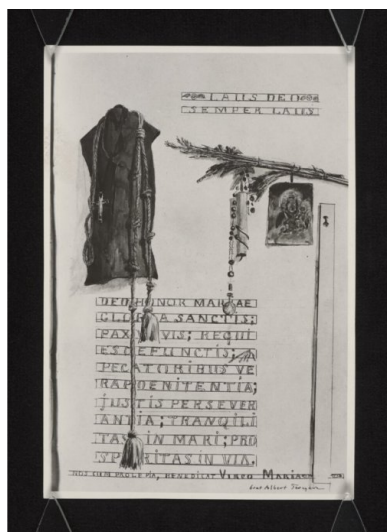 LAUS DEO
SEMPER LAUS
DEO HONOR MARIAE
GLORIA SANCTIS;
PAX VIVIS; REQUI
ES DEFUNCTIS;
PECATORIBUS VE
RA POENITENTIA;
JUSTIS PERSEVER
ANTIA; TRANQILI
TAS IN MARI; PRO
SPERITAS IN VIA.
NOS CUM PROLE PIA, BENEDICAT VIRGO MARIA
Albert